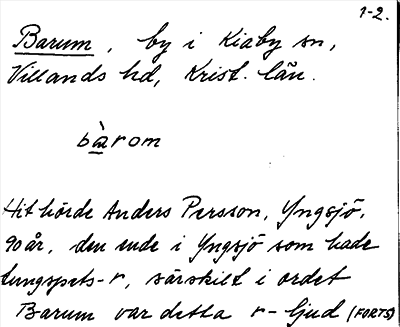 1-2.
Barum, by i Kiaby sn,
Villands hd, Krist. län.
bàrom
Hit hörde Anders Persson, Yngsjö,
90 år, den ende i Yngsjö som hade
tungspets-r, särskilt i ordet
Barum var detta r-ljud (FORTS)